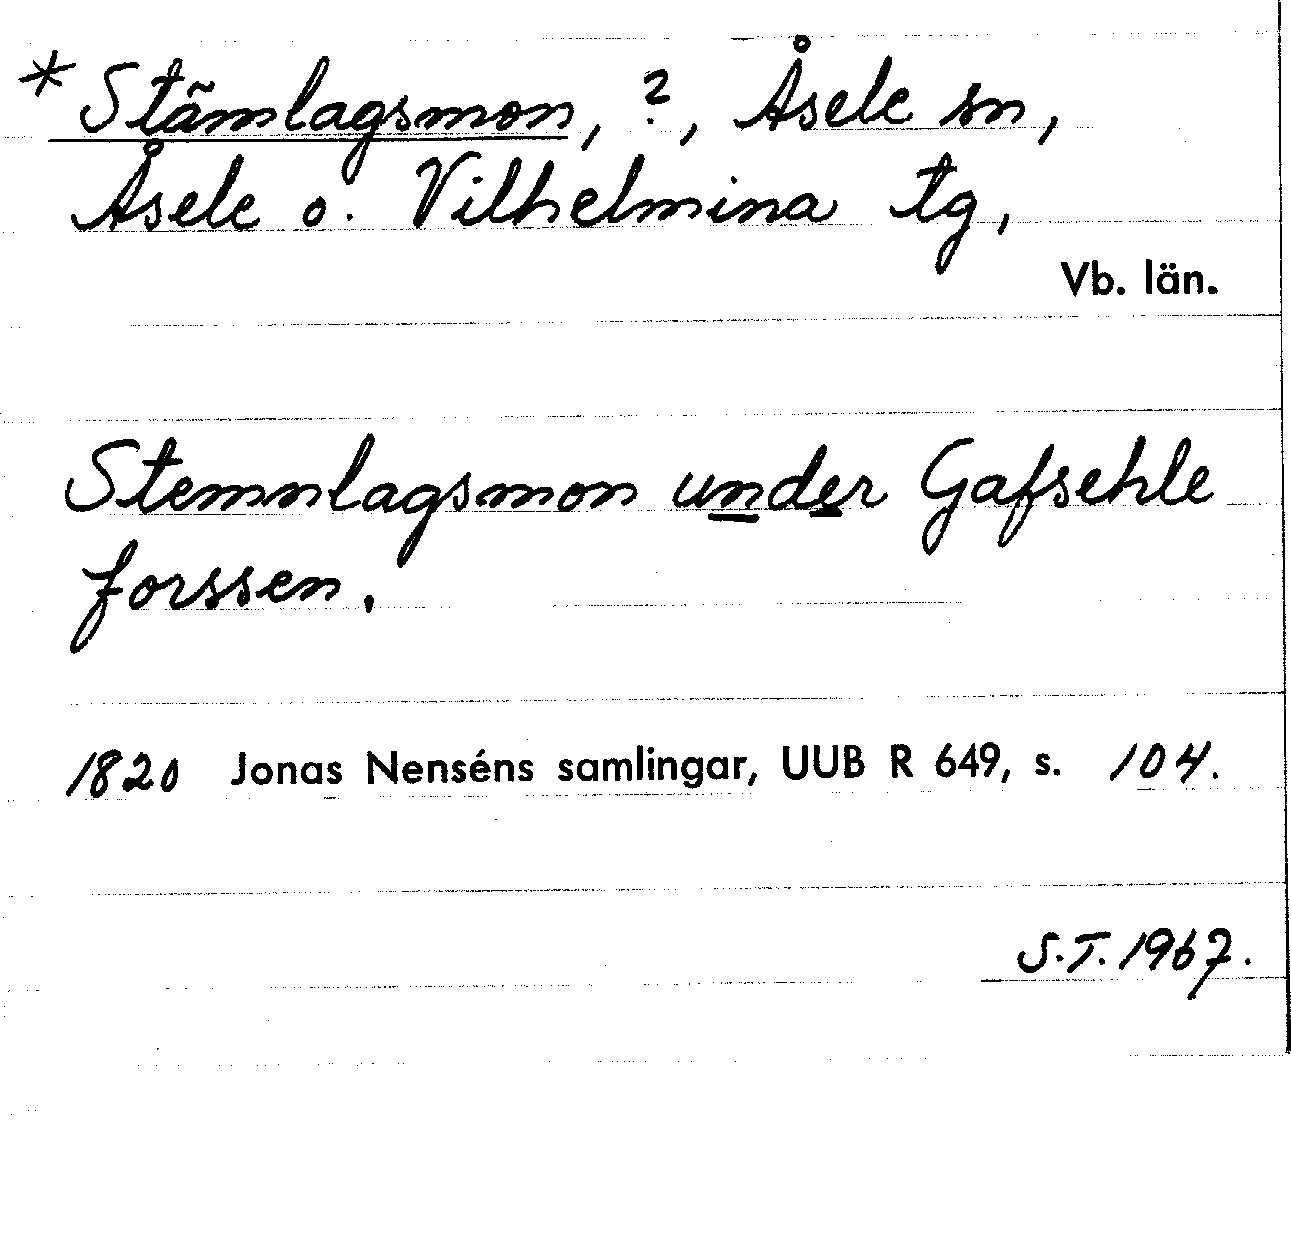 * Stämlagsmon, ?, Åsele sn,
Åsele o. Vilhelmina tg,
Vb. län.
Stemnlagsmon under Gafsehle
forssen.
1820 Jonas Nenséns samlingar, UUB R 649, s. 104.
S.T. 1967.